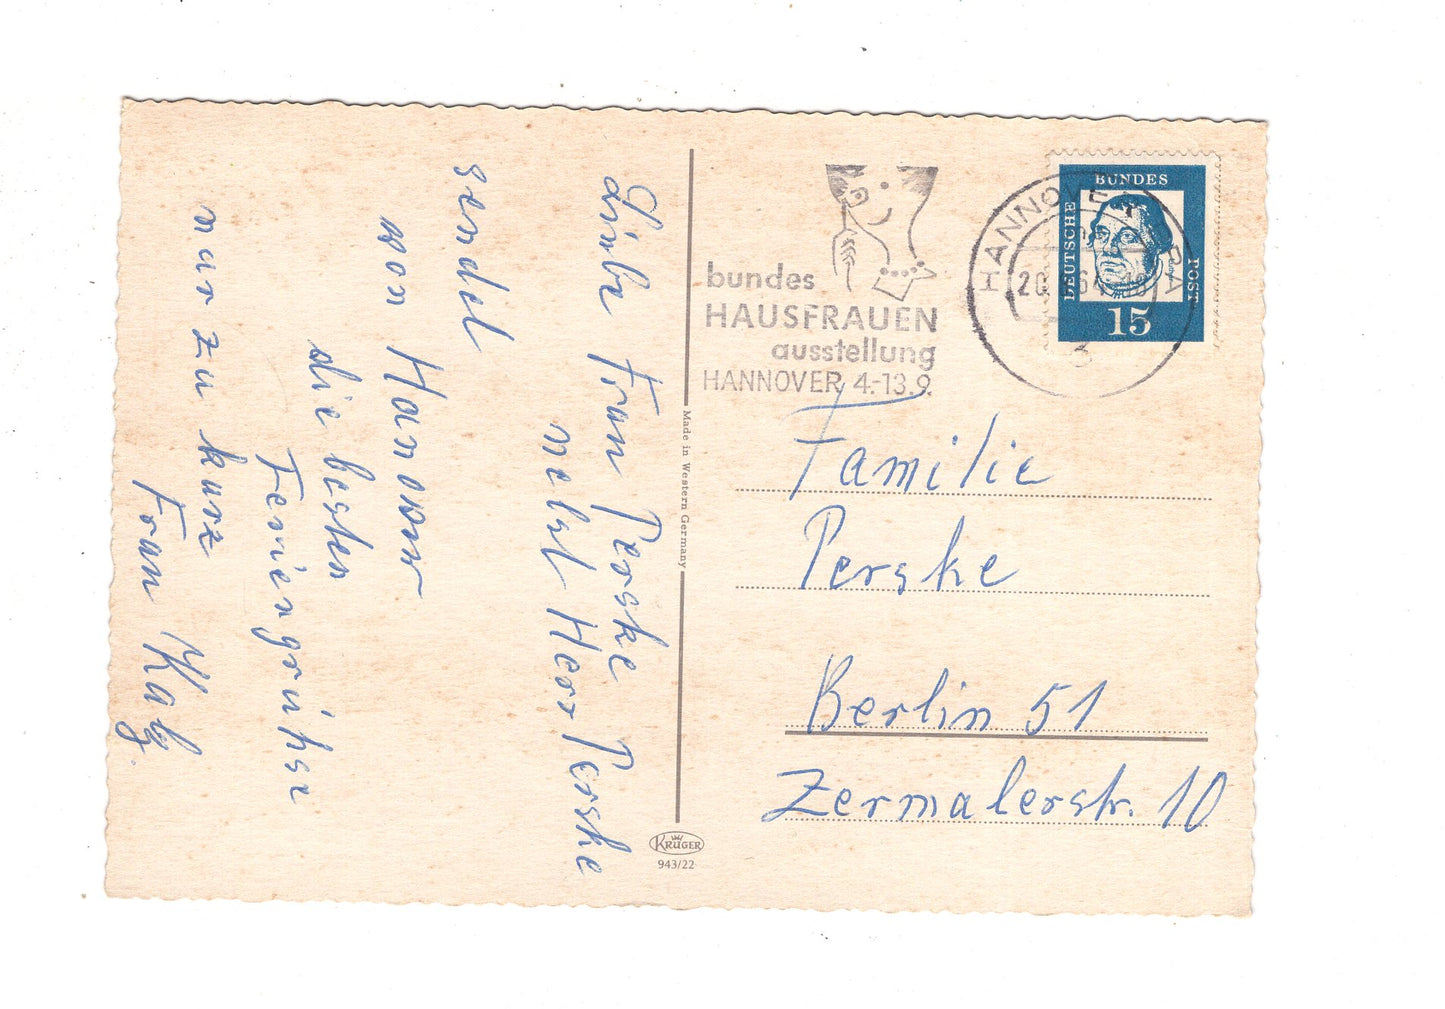 Liebe Frau Perske
nebst Herr Perske
sendet
von Hanover
die besten
Feriengrühse
nur zu kurz
Frau Katz.
Made in Western Germany
KRÜGER
943/22
bundes
HAUSFRAUEN
ausstellung
HANNOVER 4.-13.9.
HANNOVER
20. 64
3
DEUTSCHE
BUNDES
POST
15
Familie
Perske
Berlin 51
Zermalerstr. 10